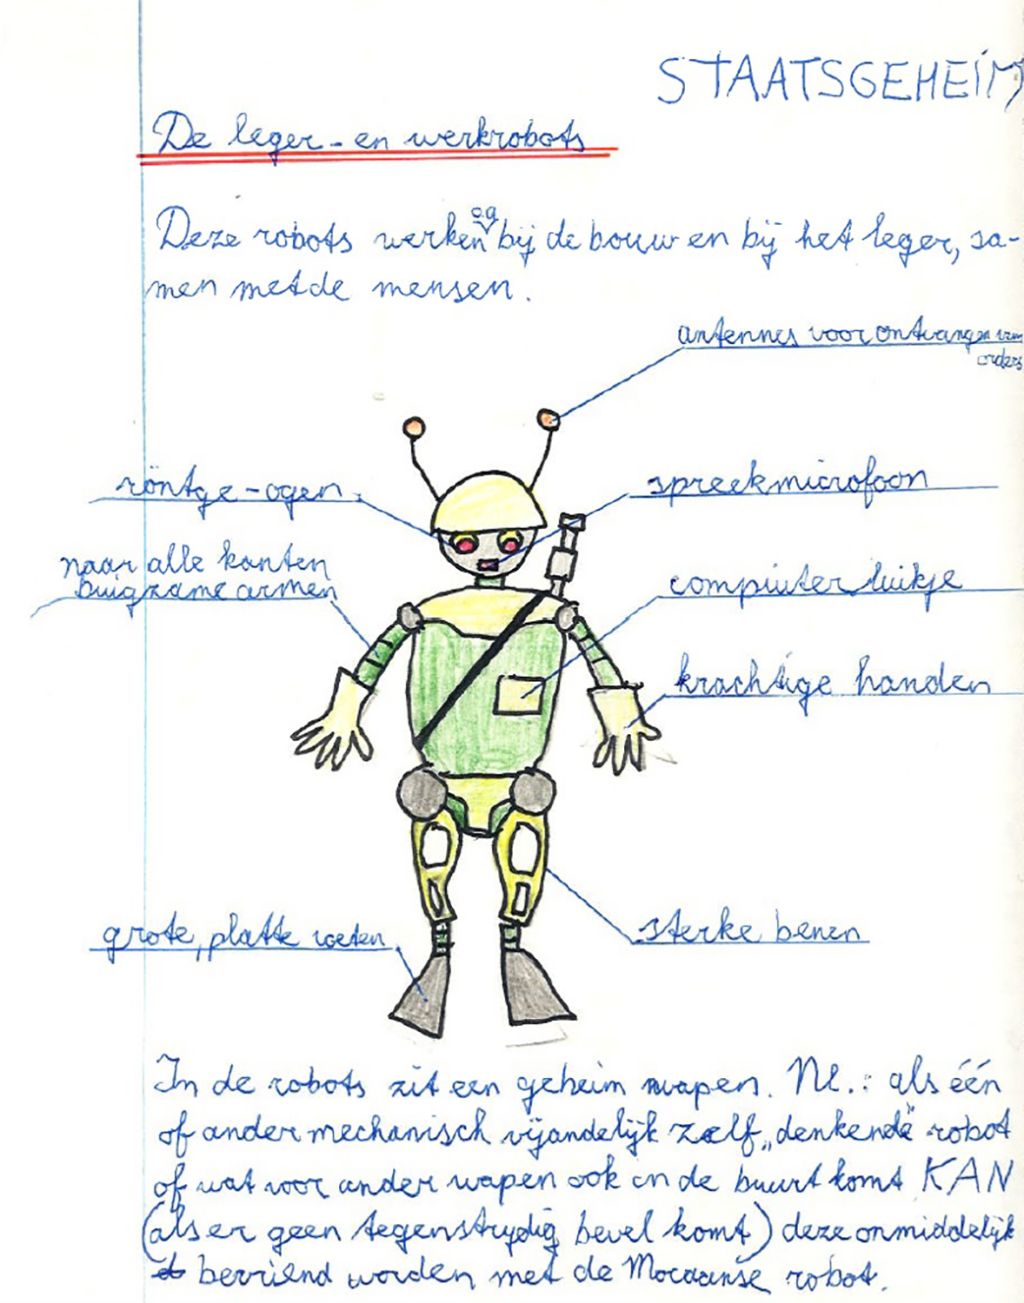 STAATSGEHEIM
De leger- en werkrobots
Deze robots werken o.a. bij de bouw en bij het leger, sa-
men met de mensen.
antennes voor ontvangen van
orders
röntge-ogen.
spreekmicrofoon
naar alle kanten
buigzame armen
computerluikje
krachtige handen
grote, platte voeten
sterke benen
In de robots zit een geheim wapen. Nl.: als één
of ander mechanisch vijandelijk zelf „denkende" robot
of wat voor ander wapen ook in de buurt komt KAN
(als er geen tegenstrydig bevel komt) deze onmiddelijk
bevriend worden met de Mocaanse robot.